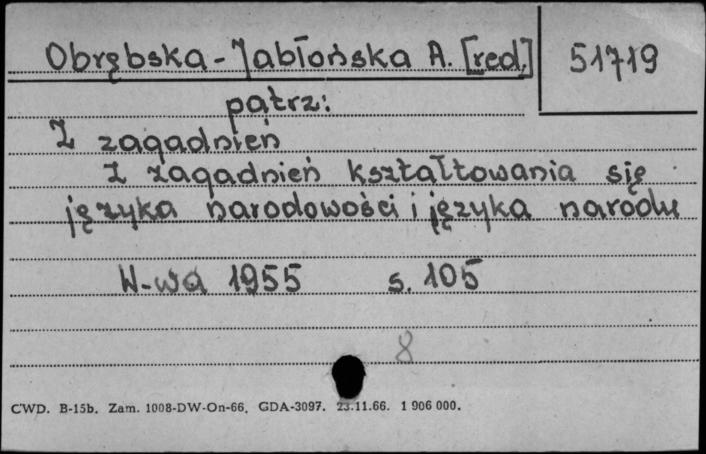 Obrębska-Jabłońska A. [red.]
51719
patrz:
Z zagadnień
Z zagadnień kształtowania się
języka narodowości i języka narodu
W-wa 1955 s. 105
8
CWD. B-15b. Zam. 1008-DW-On-66. GDA-3097. 23.11.66. 1 906 000.